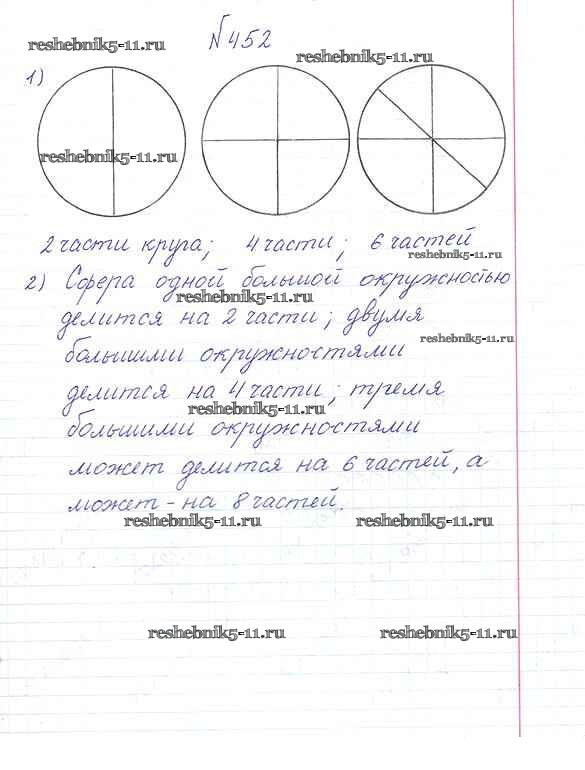 №452
reshebnik5-11.ru
reshebnik5-11.ru
1)
reshebnik5-11.ru
2 части круга; 4 части; 6 частей
reshebnik5-11.ru
2) Сфера одной большой окружностью
reshebnik5-11.ru
делится на 2 части; двумя
reshebnik5-11.ru
большими окружностями
делится на 4 части; тремя
reshebnik5-11.ru
большими окружностями
может делится на 6 частей, а
может - на 8 частей.
reshebnik5-11.ru reshebnik5-11.ru
reshebnik5-11.ru reshebnik5-11.ru